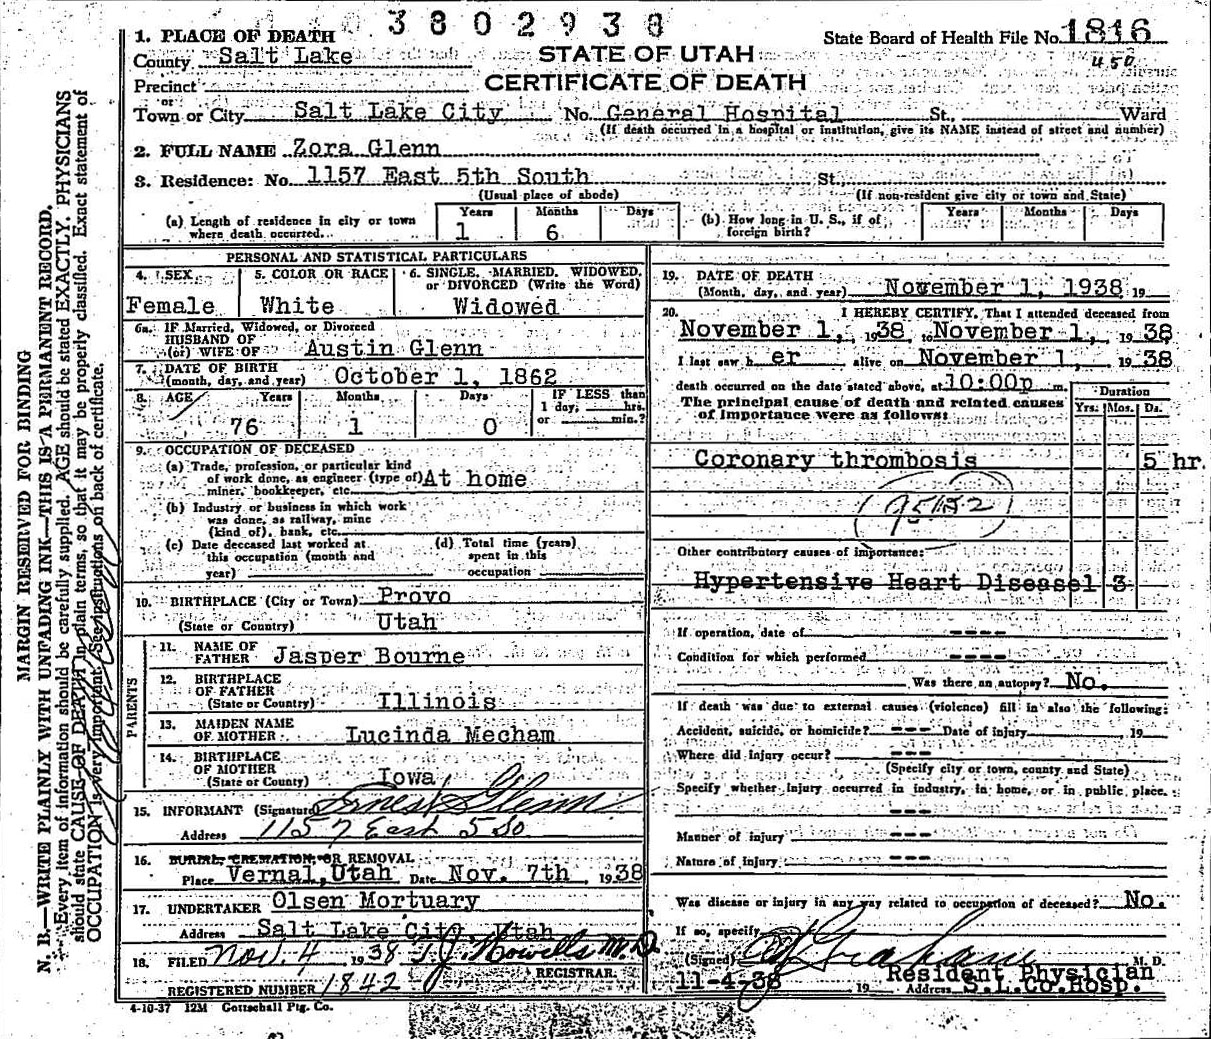 3802938
State Board of Health File No. 1816
450
STATE OF UTAH
CERTIFICATE OF DEATH
1. PLACE OF DEATH
County Salt Lake
Precinct
or
Town or City Salt Lake City No. General Hospital St., Ward
(If death occurred in a hospital or institution, give its NAME instead of street and number)
2. FULL NAME Zora Glenn
3. Residence: No. 1157 East 5th South St.
(Usual place of abode) (If non-resident give city or town and State)
(a) Length of residence in city or town where death occurred.. Years 1 Months 6 Days
(b) How long in U. S., if of foreign birth? Years Months Days
PERSONAL AND STATISTICAL PARTICULARS
4. SEX Female
5. COLOR OR RACE White
6. SINGLE, MARRIED, WIDOWED, or DIVORCED (Write the Word) Widowed
6a. IF Married, Widowed, or Divorced
HUSBAND OF
(or) WIFE OF Austin Glenn
7. DATE OF BIRTH
(month, day, and year) October 1, 1862
8. AGE Years 76 Months 1 Days 0 IF LESS than 1 day, hrs. or min.?
9. OCCUPATION OF DECEASED
(a) Trade, profession, or particular kind
of work done, as engineer (type of) At home
miner, bookkeeper, etc.
(b) Industry or business in which work
was done, as railway, mine
(kind of), bank, etc.
(c) Date deceased last worked at
this occupation (month and
year)
(d) Total time (years)
spent in this
occupation
10. BIRTHPLACE (City or Town) Provo
(State or Country) Utah
PARENTS
11. NAME OF FATHER Jasper Bourne
12. BIRTHPLACE OF FATHER
(State or Country) Illinois
13. MAIDEN NAME OF MOTHER Lucinda Mecham
14. BIRTHPLACE OF MOTHER
(State or County) Iowa
15. INFORMANT (Signature) Ernest Glenn
Address 1157 East 5 So
16. BURIAL, CREMATION, OR REMOVAL
Place Vernal, Utah Date Nov. 7th, 1938
17. UNDERTAKER Olsen Mortuary
Address Salt Lake City, Utah
18. FILED Nov. 4, 1938 T J Howells M.D.
REGISTRAR.
REGISTERED NUMBER 1842
4-10-37 12M Gottschall Ptg. Co.
19. DATE OF DEATH
(Month, day, and year) November 1, 1938 19
20. I HEREBY CERTIFY, That I attended deceased from
November 1, 1938 to November 1, 1938
I last saw her alive on November 1, 1938
death occurred on the date stated above, at 10:00p m.
The principal cause of death and related causes
of importance were as follows:
Duration
Yrs. Mos. Ds.
Coronary thrombosis 5 hr.
Other contributory causes of importance:
Hypertensive Heart Disease 1 3
If operation, date of ----
Condition for which performed ----
Was there an autopsy? No.
If death was due to external causes (violence) fill in also the following:
Accident, suicide, or homicide? --- Date of injury , 19
Where did injury occur? ---
(Specify city or town, county and State)
Specify whether injury occurred in industry, in home, or in public place.
---
Manner of injury ---
Nature of injury ---
Was disease or injury in any way related to occupation of deceased? No.
If so, specify
(Signed) Graham M. D.
Resident Physician
11-4-38 19 Address S.L.Co.Hosp.
MARGIN RESERVED FOR BINDING
N. B.—WRITE PLAINLY WITH UNFADING INK—THIS IS A PERMANENT RECORD.
Every item of information should be carefully supplied. AGE should be stated EXACTLY. PHYSICIANS
should state CAUSE OF DEATH in plain terms, so that it may be properly classified. Exact statement of
OCCUPATION is very important. See instructions on back of certificate.